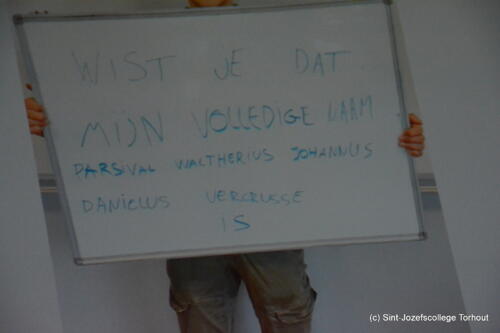 WIST JE DAT
MIJN VOLLEDIGE NAAM
PARSIVAL WALTHERIUS JOHANNUS
DANIELUS VERCRUSSE
IS
(c) Sint-Jozefscollege Torhout